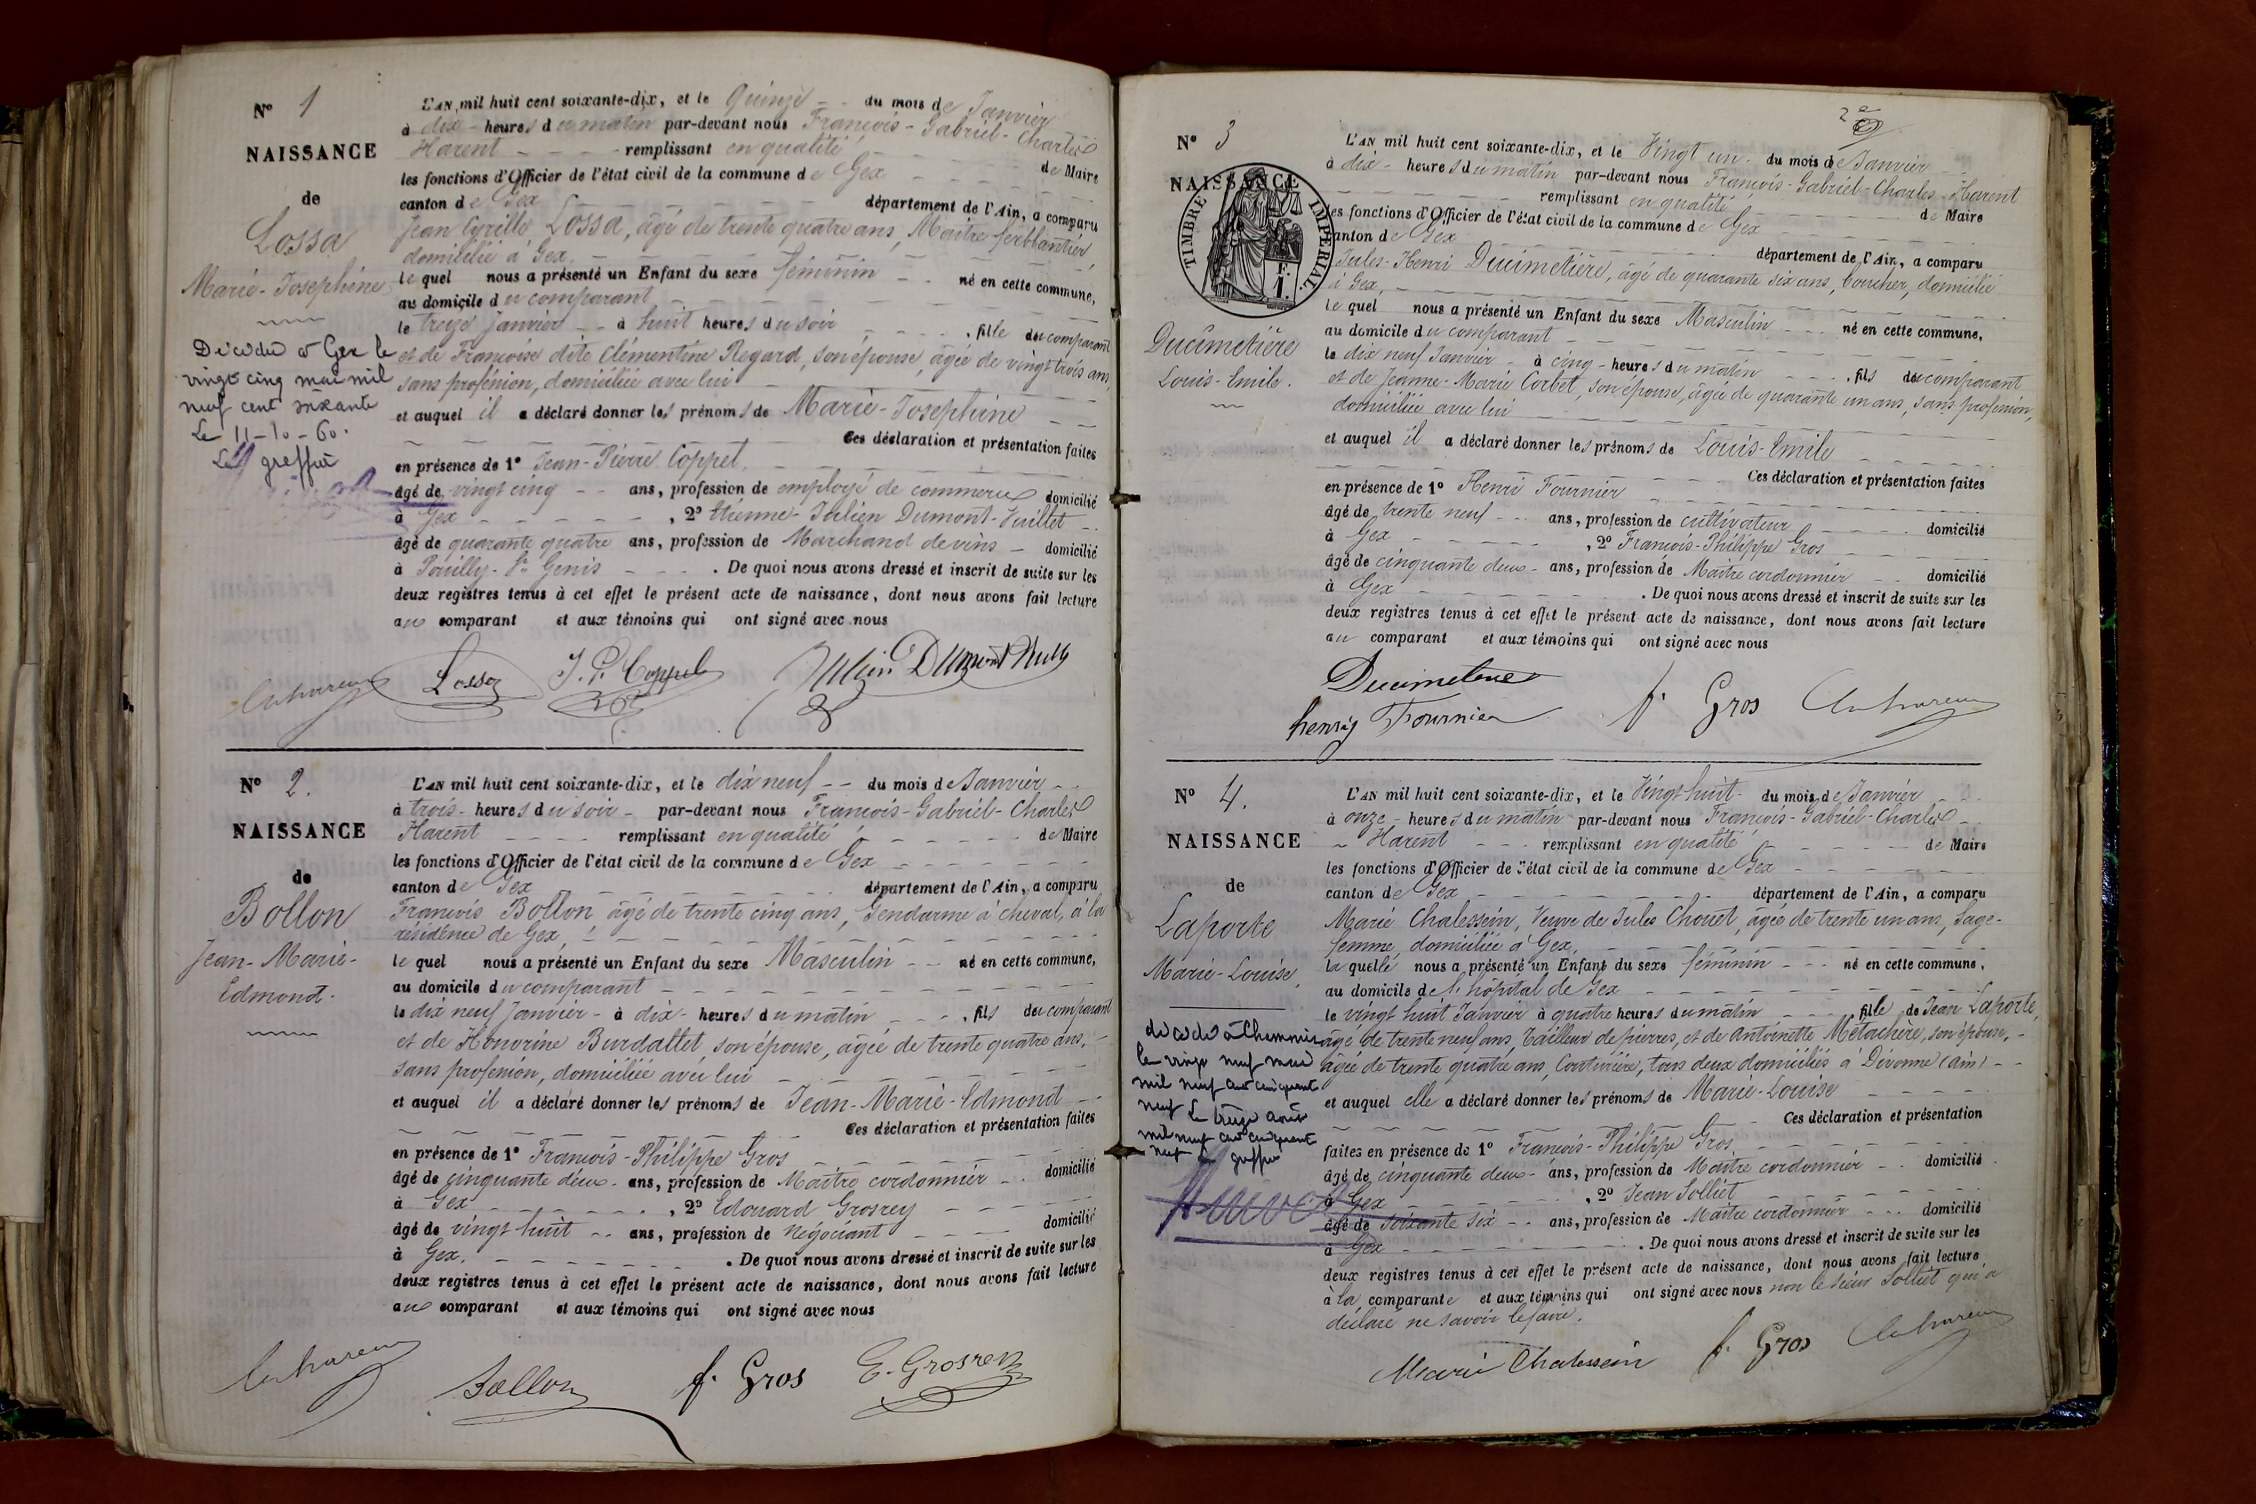 N° 1
NAISSANCE
de
Lossa
Marie-Josephine
Décédée à Gex le
vingt cinq mai mil
neuf cent soixante
Le 11-10-60.
Le greffier
L'AN mil huit cent soixante-dix, et le Quinze du mois de Janvier
à dix heures du matin par-devant nous François-Gabriel-Charles
Harent remplissant en qualité de Maire
les fonctions d'Officier de l'état civil de la commune de Gex
canton de Gex département de l'Ain, a comparu
Jean Cyrille Lossa, âgé de trente quatre ans, Maître ferblantier,
domicilié à Gex,
le quel nous a présenté un Enfant du sexe féminin né en cette commune,
au domicile du comparant
le treize janvier à huit heures du soir, fille du comparant
et de Françoise dite Clémentine Regard, son épouse, âgée de vingt trois ans,
sans profession, domiciliée avec lui
et auquel il a déclaré donner les prénoms de Marie-Josephine
Ces déclaration et présentation faites
en présence de 1° Jean-Pierre Coppel,
âgé de vingt cinq ans, profession de employé de commerce domicilié
à Gex, 2° Etienne-Julien Dumont-Vuillet
âgé de quarante quatre ans, profession de Marchand de vins domicilié
à Pouilly-St Genis. De quoi nous avons dressé et inscrit de suite sur les
deux registres tenus à cet effet le présent acte de naissance, dont nous avons fait lecture
au comparant et aux témoins qui ont signé avec nous
Lossa J. P. Coppel Julien Dumont Vuill
N° 2.
NAISSANCE
de
Bollon
Jean-Marie-
Edmond.
L'AN mil huit cent soixante-dix, et le dix neuf du mois de Janvier
à trois heures du soir par-devant nous François-Gabriel-Charles
Harent remplissant en qualité de Maire
les fonctions d'Officier de l'état civil de la commune de Gex
canton de Gex département de l'Ain, a comparu
François Bollon âgé de trente cinq ans, Gendarme à cheval, à la
résidence de Gex,
le quel nous a présenté un Enfant du sexe Masculin né en cette commune,
au domicile du comparant
le dix neuf Janvier à dix heures du matin, fils du comparant
et de Honorine Burdallet, son épouse, âgée de trente quatre ans,
sans profession, domiciliée avec lui
et auquel il a déclaré donner les prénoms de Jean-Marie-Edmond
Ces déclaration et présentation faites
en présence de 1° François-Philippe Gros
âgé de cinquante deux ans, profession de Maître cordonnier domicilié
à Gex, 2° Edouard Grosrey
âgé de vingt huit ans, profession de Négociant domicilié
à Gex. De quoi nous avons dressé et inscrit de suite sur les
deux registres tenus à cet effet le présent acte de naissance, dont nous avons fait lecture
au comparant et aux témoins qui ont signé avec nous
Bollon f. Gros E. Grosrey
2e
N° 3
NAISSANCE
TIMBRE IMPERIAL
Ducimetière
Louis-Emile.
L'AN mil huit cent soixante-dix, et le Vingt un du mois de Janvier
à dix heures du matin par-devant nous François-Gabriel-Charles-Harent
remplissant en qualité de Maire
les fonctions d'Officier de l'état civil de la commune de Gex
canton de Gex département de l'Ain, a comparu
Jules-Henri Ducimetière, âgé de quarante six ans, boucher, domicilié
à Gex,
le quel nous a présenté un Enfant du sexe Masculin né en cette commune,
au domicile du comparant
le dix neuf Janvier à cinq heures du matin, fils du comparant
et de Jeanne-Marie Corbet, son épouse, âgée de quarante un ans, sans profession,
domiciliée avec lui
et auquel il a déclaré donner les prénoms de Louis-Emile
Ces déclaration et présentation faites
en présence de 1° Henri Fournier
âgé de trente neuf ans, profession de cultivateur domicilié
à Gex, 2° François-Philippe Gros
âgé de cinquante deux ans, profession de Maître cordonnier domicilié
à Gex. De quoi nous avons dressé et inscrit de suite sur les
deux registres tenus à cet effet le présent acte de naissance, dont nous avons fait lecture
au comparant et aux témoins qui ont signé avec nous
Ducimetiere
henrij Fournier f. Gros
N° 4.
NAISSANCE
de
Laporte
Marie-Louise,
le vingt neuf
mil neuf cent cinquante
neuf Le treize août
mil neuf cent cinquante
neuf greffier
L'AN mil huit cent soixante-dix, et le Vingt huit du mois de Janvier
à onze heures du matin par-devant nous François-Gabriel-Charles
Harent remplissant en qualité de Maire
les fonctions d'Officier de l'état civil de la commune de Gex
canton de Gex département de l'Ain, a comparu
Marie Chalessein, Veuve de Jules Chouet, âgée de trente un ans, Sage-
femme, domiciliée à Gex,
la quelle nous a présenté un Enfant du sexe féminin né en cette commune,
au domicile de l'hôpital de Gex
le vingt huit Janvier à quatre heures du matin, fille de Jean Laporte,
âgé de trente neuf ans, Tailleur de pierres, et de Antoinette Métachère, son épouse,
âgée de trente quatre ans, Couturière, tous deux domiciliés à Divonne (ain)
et auquel elle a déclaré donner les prénoms de Marie-Louise
Ces déclaration et présentation
faites en présence de 1° François-Philippe Gros
âgé de cinquante deux ans, profession de Maître cordonnier domicilié
à Gex, 2° Jean Solliet
âgé de soixante six ans, profession de Maître cordonnier domicilié
à Gex. De quoi nous avons dressé et inscrit de suite sur les
deux registres tenus à cet effet le présent acte de naissance, dont nous avons fait lecture
à la comparante et aux témoins qui ont signé avec nous non le sieur Solliet qui a
déclaré ne savoir le faire.
Marie Chalessein f. Gros